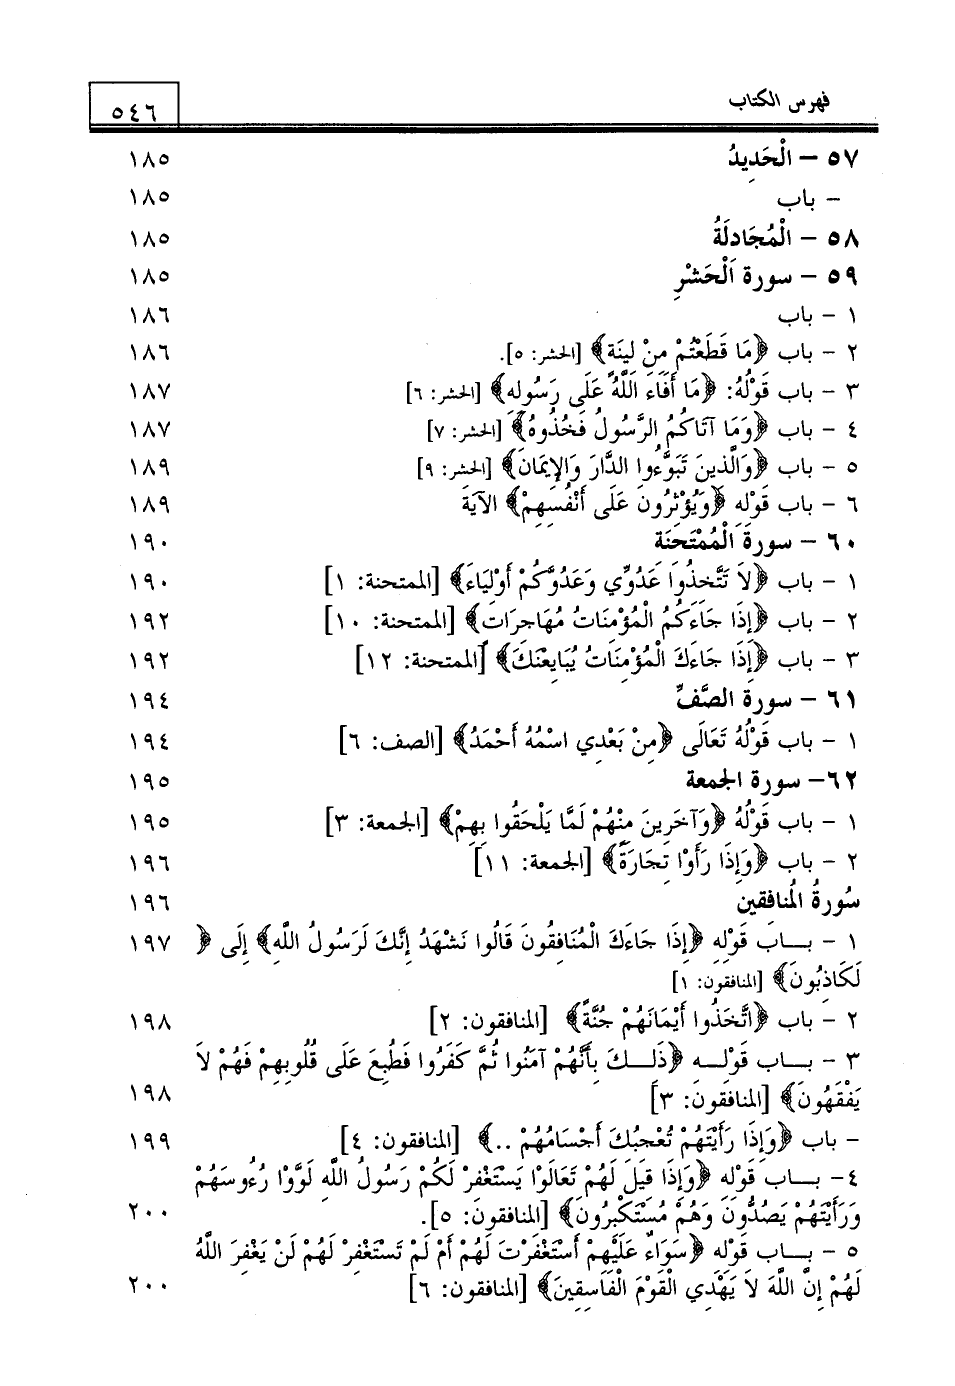 فهرس الكتاب ٥٤٦
٥٧ – الْحَدِيدُ ١٨٥
– باب ١٨٥
٥٨ – الْمُجَادلَةُ ١٨٥
٥٩ – سورة اَلْحَشْرِ ١٨٥
١ – باب ١٨٦
٢ – باب ﴿مَا قَطَعْتُمْ مِنْ لِينَةٍ﴾ [الحشر: ٥]. ١٨٦
٣ – باب قَوْلُهُ: ﴿مَا أَفَاءَ اللَّهُ عَلَى رَسُولِهِ﴾ [الحشر: ٦] ١٨٧
٤ – باب ﴿وَمَا آتَاكُمُ الرَّسُولُ فَخُذُوهُ﴾ [الحشر: ٧] ١٨٧
٥ – باب ﴿وَالَّذِينَ تَبَوَّءُوا الدَّارَ وَالإِيمَانَ﴾ [الحشر: ٩] ١٨٩
٦ – باب قَوْلِهِ ﴿وَيُؤْثِرُونَ عَلَى أَنْفُسِهِمْ﴾ الآيَةَ ١٨٩
٦٠ – سورة الْمُمْتَحِنَة ١٩٠
١ – باب ﴿لاَ تَتَّخِذُوا عَدُوِّي وَعَدُوَّكُمْ أَوْلِيَاءَ﴾ [الممتحنة: ١] ١٩٠
٢ – باب ﴿إِذَا جَاءَكُمُ الْمُؤْمِنَاتُ مُهَاجِرَاتٍ﴾ [الممتحنة: ١٠] ١٩٢
٣ – باب ﴿إِذَا جَاءَكَ الْمُؤْمِنَاتُ يُبَايِعْنَكَ﴾ [الممتحنة: ١٢] ١٩٢
٦١ – سورة الصَّفِّ ١٩٤
١ – باب قَوْلُهُ تَعَالَى ﴿مِنْ بَعْدِي اسْمُهُ أَحْمَدُ﴾ [الصف: ٦] ١٩٤
٦٢– سورة الجمعة ١٩٥
١ – باب قَوْلُهُ ﴿وَآخَرِينَ مِنْهُمْ لَمَّا يَلْحَقُوا بِهِمْ﴾ [الجمعة: ٣] ١٩٥
٢ – باب ﴿وَإِذَا رَأَوْا تِجَارَةً﴾ [الجمعة: ١١] ١٩٦
سُورةُ الُمنافقين ١٩٦
١ – بـــاب قَوْلِهِ ﴿إِذَا جَاءَكَ الْمُنَافِقُونَ قَالُوا نَشْهَدُ إِنَّكَ لَرَسُولُ اللَّهِ﴾ إِلَى ﴿ ١٩٧
لَكَاذِبُونَ﴾ [المنافقون: ١]
٢ – باب ﴿اتَّخَذُوا أَيْمَانَهُمْ جُنَّةً﴾ [المنافقون: ٢] ١٩٨
٣ – بـــاب قَوْلِـــهِ ﴿ذَلِـــكَ بِأَنَّهُمْ آمَنُوا ثُمَّ كَفَرُوا فَطُبِعَ عَلَى قُلُوبِهِمْ فَهُمْ لاَ
يَفْقَهُونَ﴾ [المنافقون: ٣] ١٩٨
– باب ﴿وَإِذَا رَأَيْتَهُمْ تُعْجِبُكَ أَجْسَامُهُمْ ..﴾ [المنافقون: ٤] ١٩٩
٤– بـــاب قَوْلِهِ ﴿وَإِذَا قِيلَ لَهُمْ تَعَالَوْا يَسْتَغْفِرْ لَكُمْ رَسُولُ اللَّهِ لَوَّوْا رُءُوسَهُمْ
وَرَأَيْتَهُمْ يَصُدُّونَ وَهُمْ مُسْتَكْبِرُونَ﴾ [المنافقون: ٥]. ٢٠٠
٥ – بـــاب قَوْلِهِ ﴿سَوَاءٌ عَلَيْهِمْ أَسْتَغْفَرْتَ لَهُمْ أَمْ لَمْ تَسْتَغْفِرْ لَهُمْ لَنْ يَغْفِرَ اللَّهُ
لَهُمْ إِنَّ اللَّهَ لاَ يَهْدِي الْقَوْمَ الْفَاسِقِينَ﴾ [المنافقون: ٦] ٢٠٠